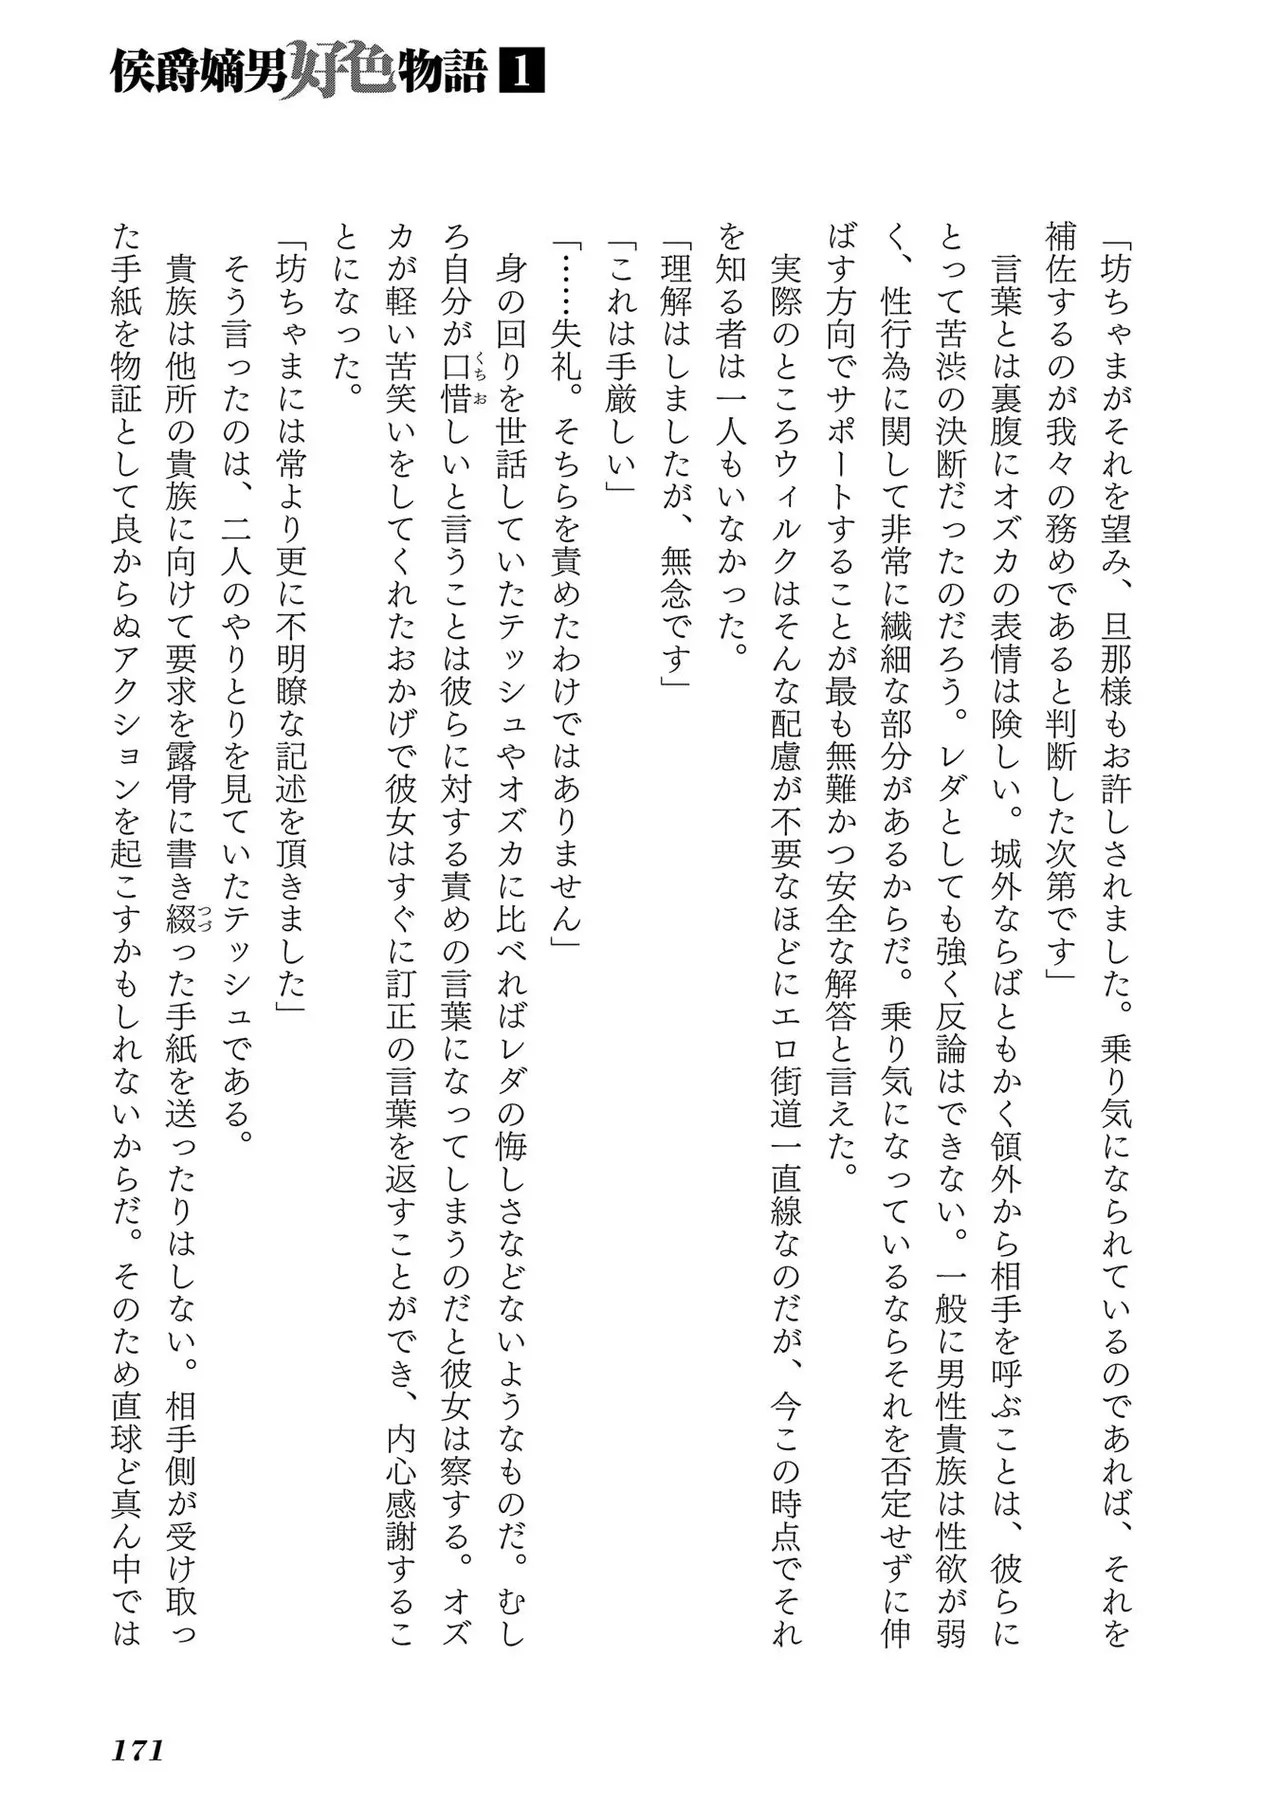 侯爵嫡男好色物語 1
「坊ちゃまがそれを望み、旦那様もお許しされました。乗り気になられているのであれば、それを
補佐するのが我々の務めであると判断した次第です」
言葉とは裏腹にオズカの表情は険しい。城外ならばともかく領外から相手を呼ぶことは、彼らに
とって苦渋の決断だったのだろう。レダとしても強く反論はできない。一般に男性貴族は性欲が弱
く、性行為に関して非常に繊細な部分があるからだ。乗り気になっているならそれを否定せずに伸
ばす方向でサポートすることが最も無難かつ安全な解答と言えた。
実際のところウィルクはそんな配慮が不要なほどにエロ街道一直線なのだが、今この時点でそれ
を知る者は一人もいなかった。
「理解はしましたが、無念です」
「これは手厳しい」
「……失礼。そちらを責めたわけではありません」
身の回りを世話していたテッシュやオズカに比べればレダの悔しさなどないようなものだ。むし
ろ自分が口惜しいと言うことは彼らに対する責めの言葉になってしまうのだと彼女は察する。オズ
カが軽い苦笑いをしてくれたおかげで彼女はすぐに訂正の言葉を返すことができ、内心感謝するこ
とになった。
「坊ちゃまには常より更に不明瞭な記述を頂きました」
そう言ったのは、二人のやりとりを見ていたテッシュである。
貴族は他所の貴族に向けて要求を露骨に書き綴った手紙を送ったりはしない。相手側が受け取っ
た手紙を物証として良からぬアクションを起こすかもしれないからだ。そのため直球ど真ん中では
くちお
つづ
171